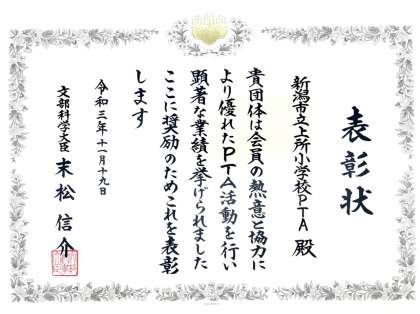 表彰状
新潟市立上所小学校PTA 殿
貴団体は会員の熱意と協力に
より優れたPTA活動を行い
顕著な業績を挙げられました
ここに奨励のためこれを表彰
します
令和三年十一月十九日
文部科学大臣 末松信介